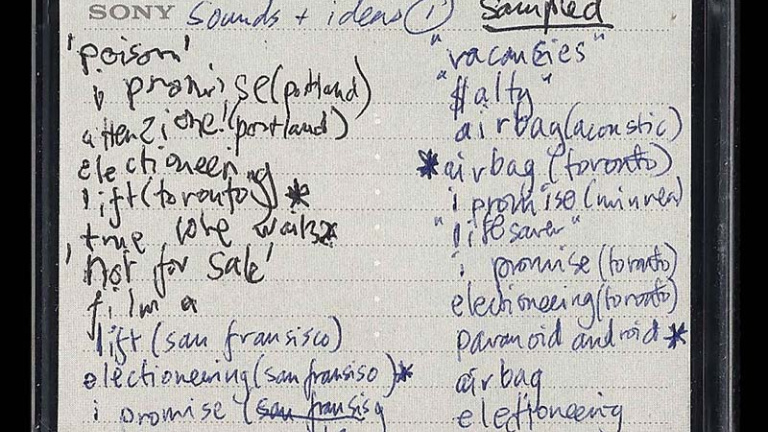 SONY sounds + ideas ① sampled
'poison'
i promise (portland)
attenzione! (portland)
electioneering
lift (toronto) *
true love waits *
'not for sale'
film a
lift (san fransisco)
electioneering (san fransiso) *
i promise (san fransisq
"vacansies"
"$alty"
airbag (acoustic)
*airbag (toronto)
i promise (
"lifesaver"
i promise (toronto)
electioneering (toronto)
paranoid android *
airbag
electioneering